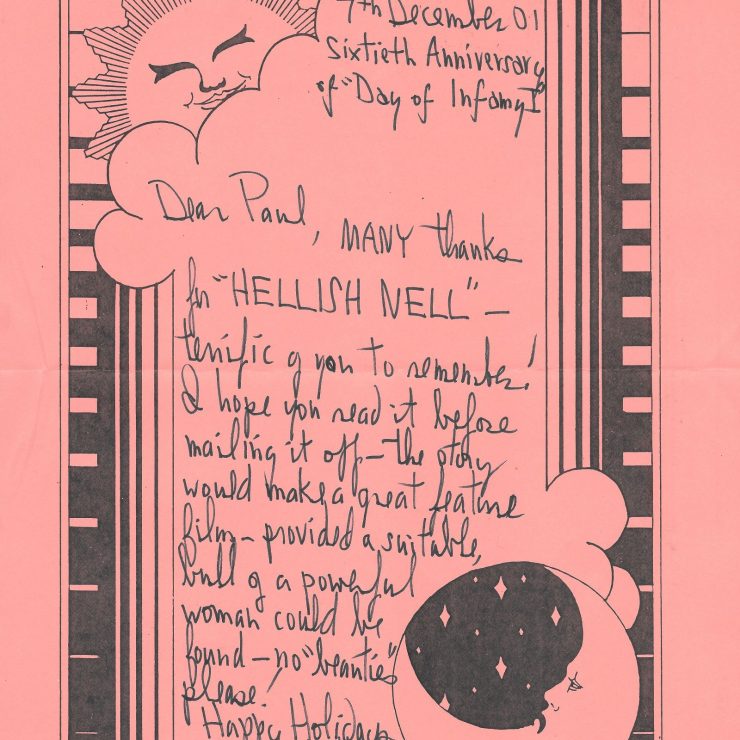 7th December 01
Sixtieth Anniversary
of "Day of Infamy"
Dear Paul, MANY thanks
for "HELLISH NELL" –
terrific of you to remember!
I hope you read it before
mailing it off – the story
would make a great feature
film – provided a suitable,
bull of a powerful
woman could be
found – no "beauties"
please!
Happy Holidays